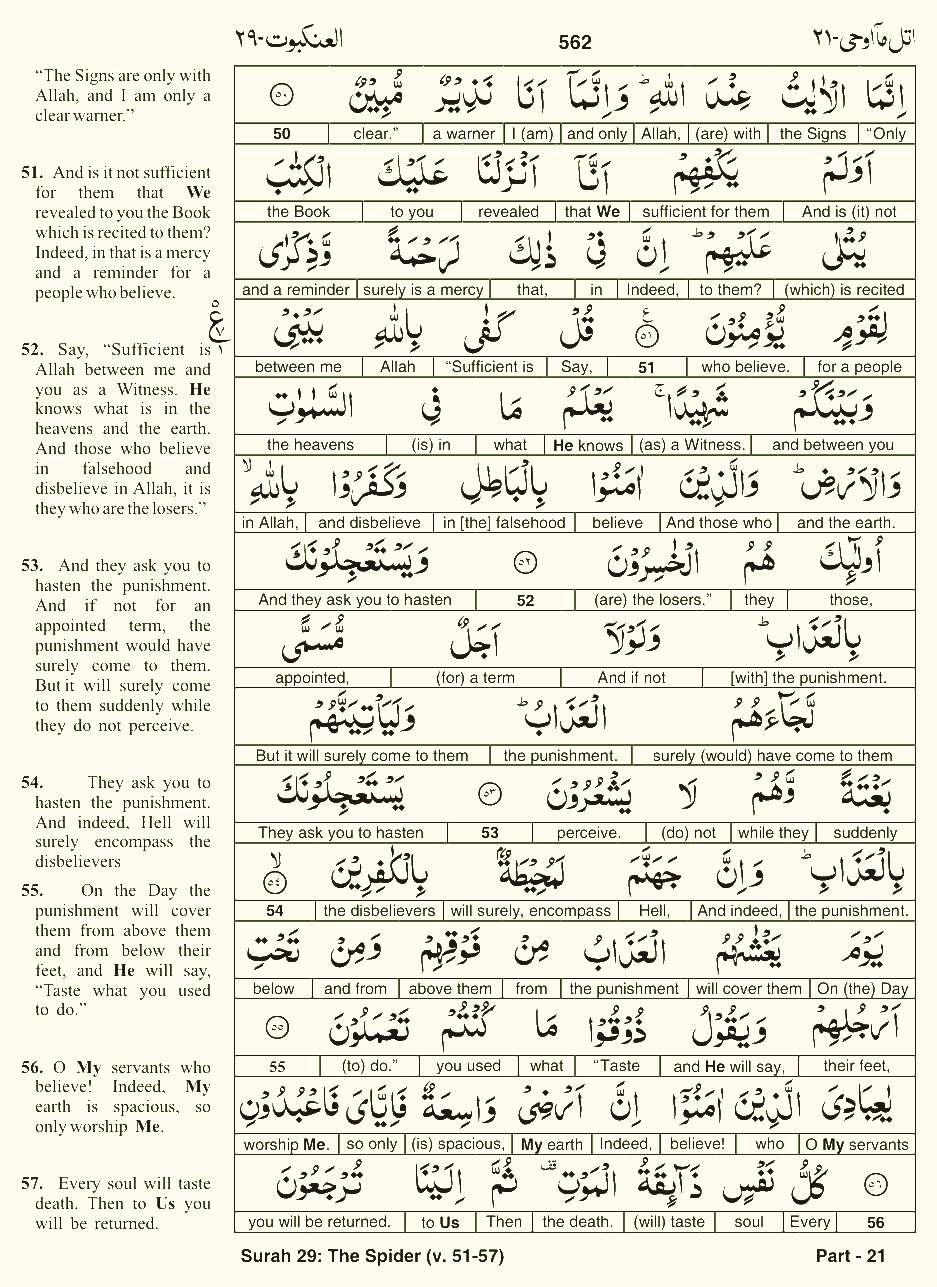 العنكبوت-٢٩ 562 اتل مآاوحى-٢١
“The Signs are only with
Allah, and I am only a
clear warner.”
51. And is it not sufficient
for them that We
revealed to you the Book
which is recited to them?
Indeed, in that is a mercy
and a reminder for a
people who believe.
52. Say, “Sufficient is
Allah between me and
you as a Witness. He
knows what is in the
heavens and the earth.
And those who believe
in falsehood and
disbelieve in Allah, it is
they who are the losers.”
53. And they ask you to
hasten the punishment.
And if not for an
appointed term, the
punishment would have
surely come to them.
But it will surely come
to them suddenly while
they do not perceive.
54. They ask you to
hasten the punishment.
And indeed, Hell will
surely encompass the
disbelievers
55. On the Day the
punishment will cover
them from above them
and from below their
feet, and He will say,
“Taste what you used
to do.”
56. O My servants who
believe! Indeed, My
earth is spacious, so
only worship Me.
57. Every soul will taste
death. Then to Us you
will be returned.
اِنَّمَا الْاٰيٰتُ عِنْدَ اللّٰهِ ؕ وَاِنَّمَاۤ اَنَا نَذِيْرٌ مُّبِيْنٌ ﴿٥٠﴾
50 clear.” a warner I (am) and only Allah, (are) with the Signs “Only
اَوَلَمْ يَكْفِهِمْ اَنَّاۤ اَنْزَلْنَا عَلَيْكَ الْكِتٰبَ
the Book to you revealed that We sufficient for them And is (it) not
يُتْلٰى عَلَيْهِمْ ؕ اِنَّ فِيْ ذٰلِكَ لَرَحْمَةً وَّذِكْرٰى
and a reminder surely is a mercy that, in Indeed, to them? (which) is recited
لِقَوْمٍ يُّؤْمِنُوْنَ ﴿٥١﴾ ع قُلْ كَفٰى بِاللّٰهِ بَيْنِيْ
between me Allah “Sufficient is Say, 51 who believe. for a people
وَبَيْنَكُمْ شَهِيْدًا ۚ يَعْلَمُ مَا فِي السَّمٰوٰتِ
the heavens (is) in what He knows (as) a Witness. and between you
وَالْاَرْضِ ؕ وَالَّذِيْنَ اٰمَنُوْا بِالْبَاطِلِ وَكَفَرُوْا بِاللّٰهِ ۙ
in Allah, and disbelieve in [the] falsehood believe And those who and the earth.
اُولٰٓئِكَ هُمُ الْخٰسِرُوْنَ ﴿٥٢﴾ وَيَسْتَعْجِلُوْنَكَ
And they ask you to hasten 52 (are) the losers.” they those,
بِالْعَذَابِ ؕ وَلَوْلَاۤ اَجَلٌ مُّسَمًّى
appointed, (for) a term And if not [with] the punishment.
لَّجَآءَهُمُ الْعَذَابُ ؕ وَلَيَاْتِيَنَّهُمْ
But it will surely come to them the punishment. surely (would) have come to them
بَغْتَةً وَّهُمْ لَا يَشْعُرُوْنَ ﴿٥٣﴾ يَسْتَعْجِلُوْنَكَ
They ask you to hasten 53 perceive. (do) not while they suddenly
بِالْعَذَابِ ؕ وَاِنَّ جَهَنَّمَ لَمُحِيْطَةٌۢ بِالْكٰفِرِيْنَ ﴿٥٤﴾ ۙ
54 the disbelievers will surely, encompass Hell, And indeed, the punishment.
يَوْمَ يَغْشٰىهُمُ الْعَذَابُ مِنْ فَوْقِهِمْ وَمِنْ تَحْتِ
below and from above them from the punishment will cover them On (the) Day
اَرْجُلِهِمْ وَيَقُوْلُ ذُوْقُوْا مَا كُنْتُمْ تَعْمَلُوْنَ ﴿٥٥﴾
55 (to) do.” you used what “Taste and He will say, their feet,
يٰعِبَادِيَ الَّذِيْنَ اٰمَنُوْۤا اِنَّ اَرْضِيْ وَاسِعَةٌ فَاِيَّايَ فَاعْبُدُوْنِ
worship Me. so only (is) spacious, My earth Indeed, believe! who O My servants
﴿٥٦﴾ كُلُّ نَفْسٍ ذَآئِقَةُ الْمَوْتِ ۫ ثُمَّ اِلَيْنَا تُرْجَعُوْنَ
you will be returned. to Us Then the death. (will) taste soul Every 56
Surah 29: The Spider (v. 51-57) Part - 21